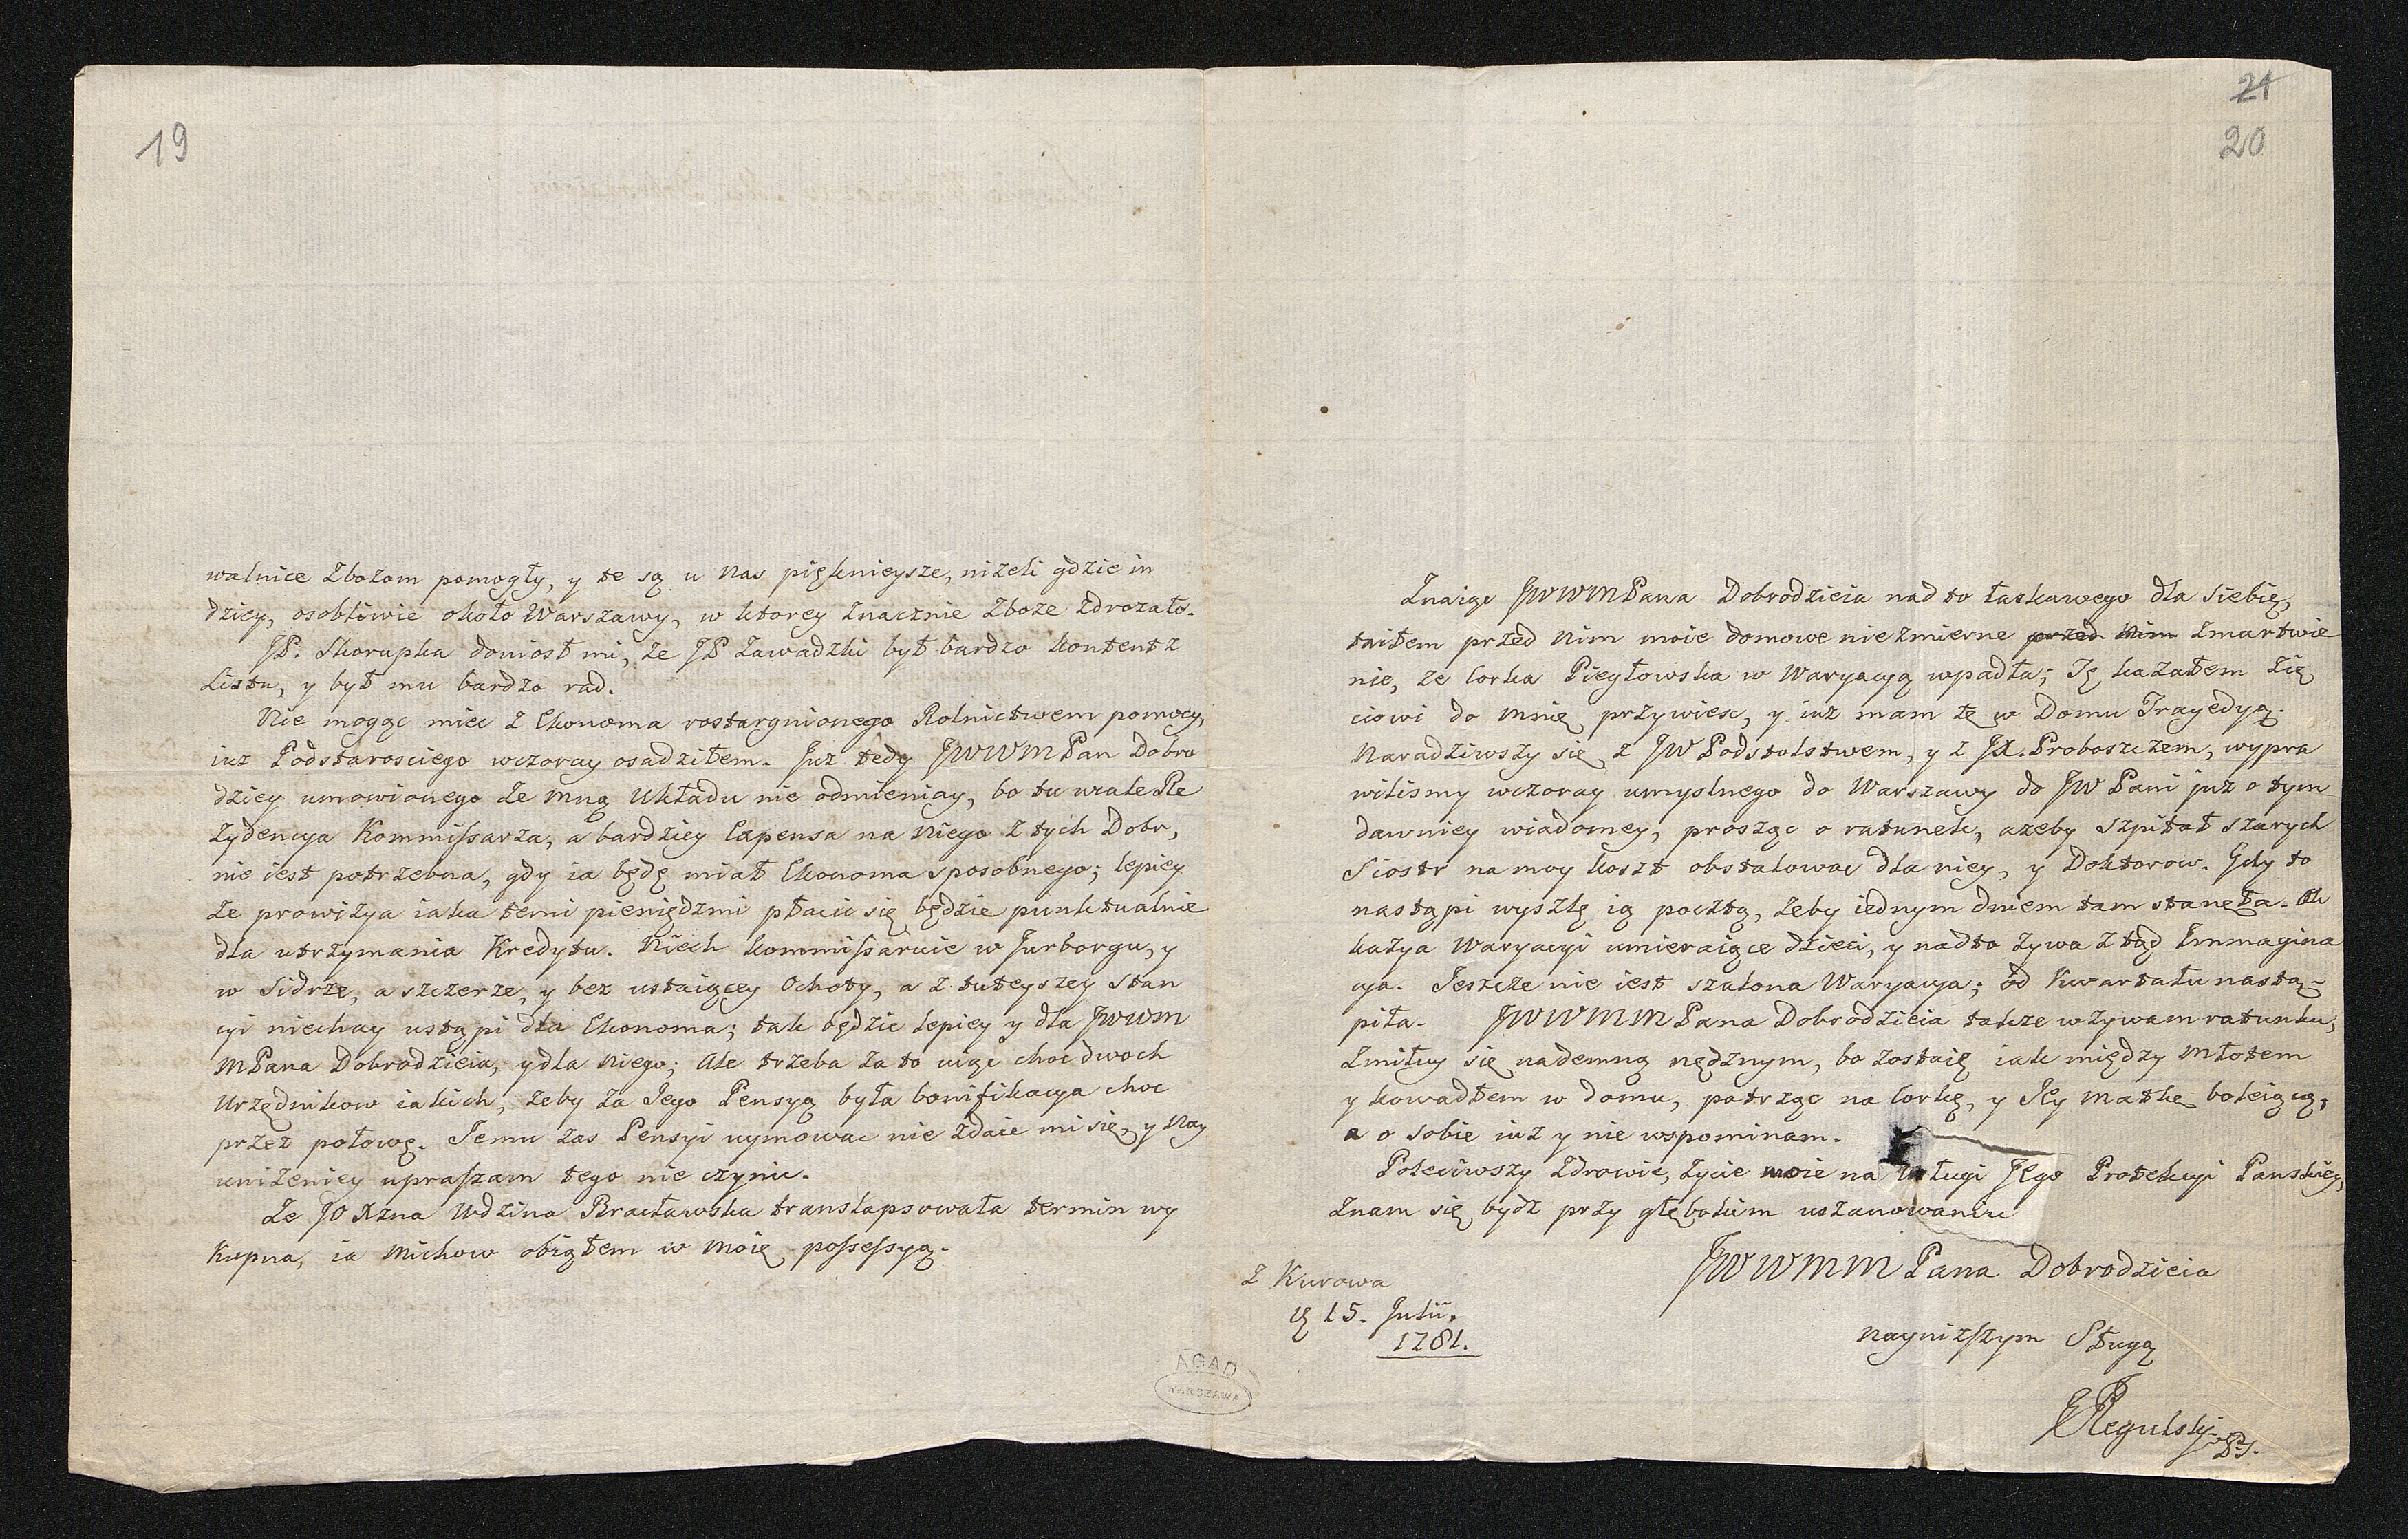 19
walnice Zbozom pomogły, y te są u Nas pięknieysze, nizeli gdzie in
dziey, osobliwie około Warszawy, w ktorey znacznie Zboze zdrozało.
JP. Skorupka doniosł mi, ze JP Zawadzki był bardzo kontent z
Listu, y był mu bardzo rad.
Nie mogąc miec z Ekonoma rostargnionego Rolnictwem pomocy,
iuz Podstarosciego wczoray osadziłem. Juz tedy JWWMPan Dobro
dziey umowionego ze mną Układu nie odmieniay, bo tu wcale Re
zydencya Kommissarza, a bardziey Expensa na Niego z tych Dobr,
nie iest potrzebna, gdy ia będę miał Ekonoma sposobnego; lepiey
ze prowizya iaka temi pieniędzmi płacic się będzie punktualnie
dla utrzymania Kredytu. Niech kommissaruie w Jurborgu, y
w Sidrze, a szczerze, y bez ustaiącey Ochoty, a z tuteyszey stan
cyi niechay ustąpi dla Ekonoma; tak będzie lepiey y dla JWWM
MPana Dobrodzieia, y dla Niego; Ale trzeba za to uiąc choc dwoch
Urzędnikow iakich, zeby za Jego Pensyą była bonifikacya choc
przez połowę. Temu zas Pensyi uymowac nie zdaie mi się, y Nay
unizeniey upraszam tego nie czynic.
Ze JO Xzna Wdzina Bracławska translapsowała termin wy
kupna, ia Michow obiąłem w moię possessyą.
21
20
Znaiąc JWWMPana Dobrodzieia nad to łaskawego dla siebie,
taiłem przed Nim moie domowe niezmierne przed Nim zmartwie
nie, ze Corka Piegłowska w Waryacyą wpadła; Tę kazałem Zię
ciowi do mnię przywiesc, y iuz mam tę w Domu Tragedyą.
Naradziwszy się z JW Podstolstwem, y z JX. Proboszczem, wypra
wilismy wczoray umyslnego do Warszawy do JW Pani juz o tym
dawniey wiadomey, prosząc o ratunek, azeby szpital szarych
Siostr na moy koszt obstalowac dla niey, y Doktorow. Gdy to
nastąpi wyszlę ią pocztą, zeby iednym dniem tam stanęła. Ok
kazya Waryacyi umieraiące dzieci, y nadto zywa z tąd Immagina
cya. Jeszcze nie iest szalona Waryacya; od Kwartału nastą-
piła. JWWMMPana Dobrodzieia takze wzywam ratunku,
zmiłuy się nademną nędznym, bo zostaię iak między młotem
y kowadłem w domu, patrząc na Corkę, y Jey Matkę boleiącą,
a o sobie iuz y nie wspominam.
Poleciwszy Zdrowie, Zycie moie na usługi Jego Protekcyi Panskiey,
znam się bydz przy głębokim uszanowaniu
JWWMM Pana Dobrodzieia
Z Kurowa
15. Julii.
1781.
nayniższym Sługą
Regulski
AGAD
WARSZAWA